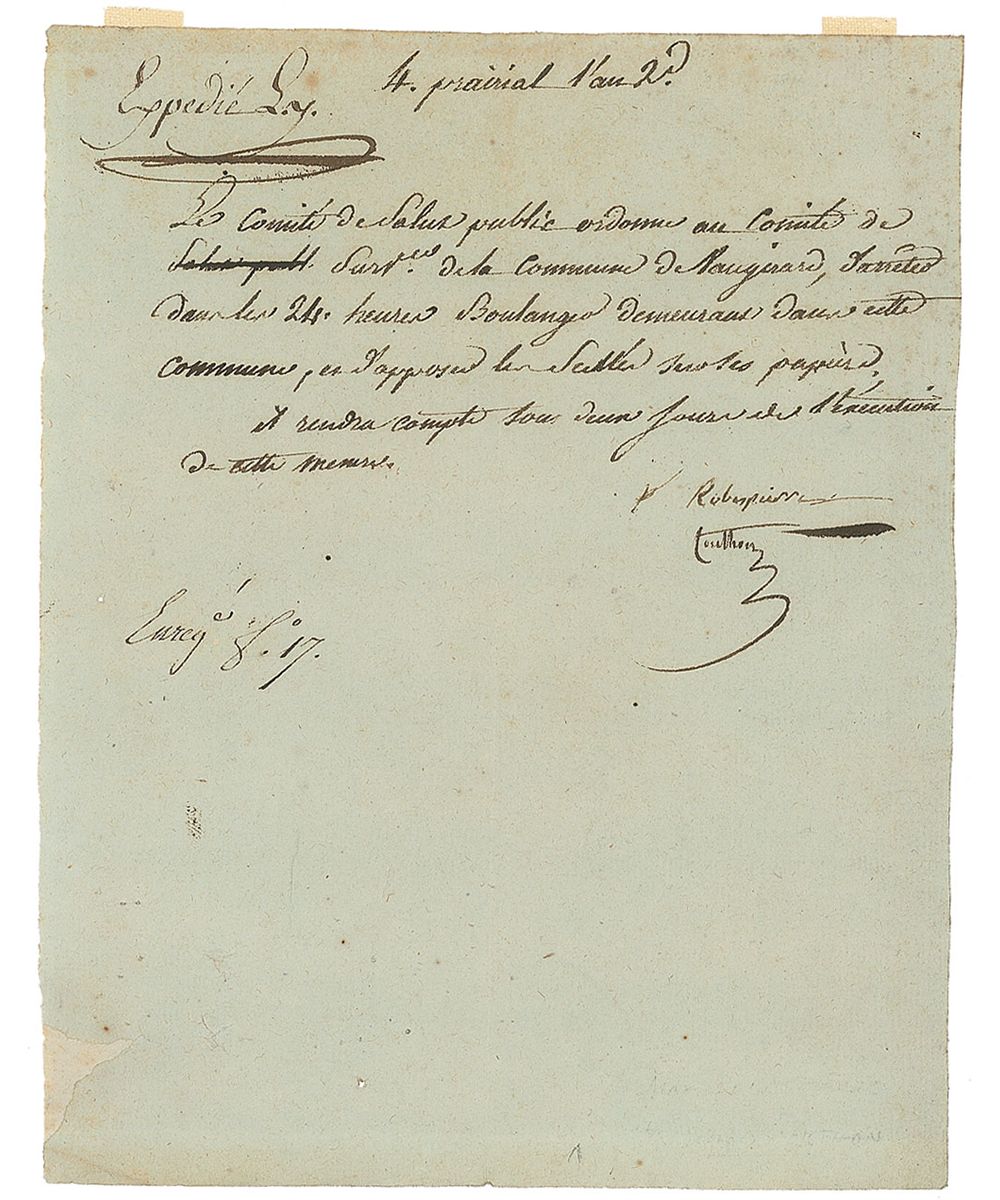 4. prairial l'an 2.d
Expedié L.y.
Le Comité de Salut public ordonne au Comité de
Salut publ. Surv.ce de la Commune de Vaugirard, d'arrêter
dans les 24. heures Boulanger demeurant dans cette
commune, et d'apposer les Scellés sur ses papiers.
il rendra compte sous deux jours de l'exécution
de cette mesure.
Robespierre
Couthon
Enregé f.o 17.